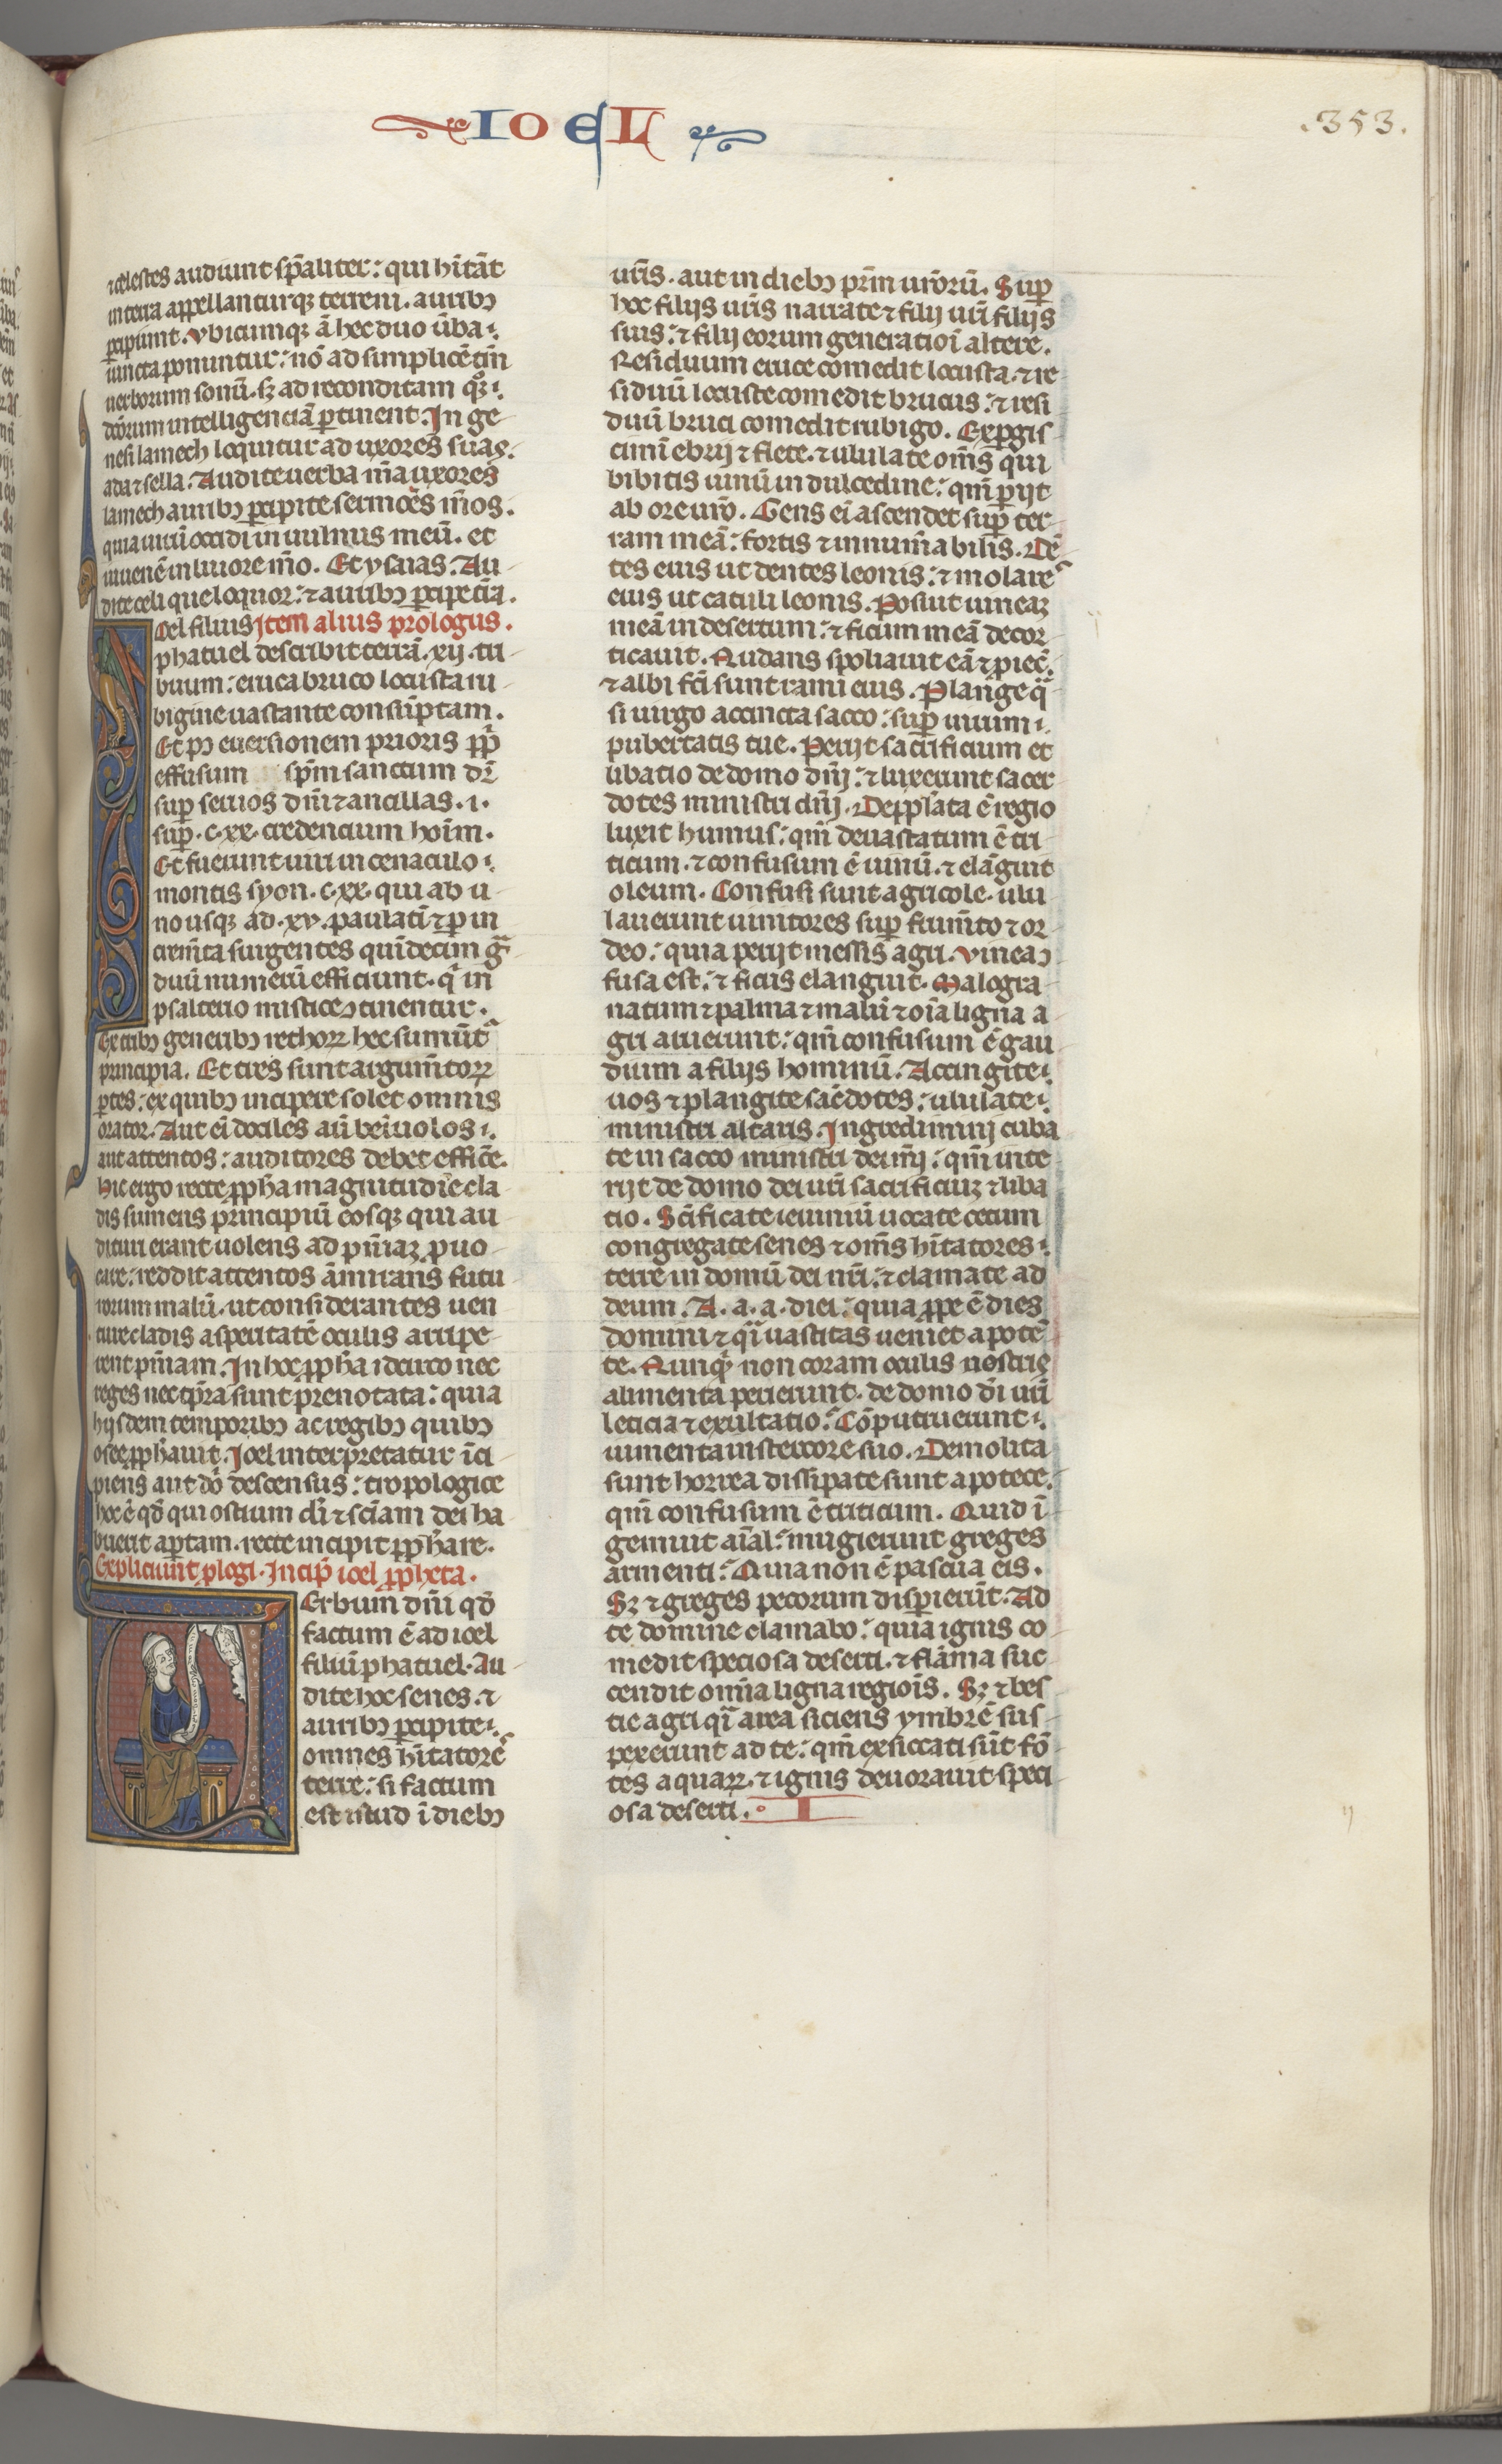 IOEL
.353.
⁊celestes audiunt sp̄aliter: qui hĩtãt
in terra appellantur q; terreni. aurib9
ꝑcipiunt. Vbicumq; ã hec duo ũba
iuncta ponuntur: nõ ad simplicẽ tm̃
uerborum sonũ. s; ad reconditam
intelligenciã ꝑtinent. In ge
nesi lamech loquitur ad uxores suas.
ada ⁊ sella. Audite uerba m̃a uxores
lamech aurib9 ꝑcipite sermões m̃os.
quia uirũ occidi in uulnus meũ. et
iuuenẽ in liuore m̃o. Et ysaias. Au
dite celi que loquor: ⁊ aurib9 ꝑcipe t̃ra.
Oel filius Item alius prologus.
phatuel describit terrã .xij. tri
buum: eruca bruco locusta ru
bigine uastante consũptam.
Et p9 euersionem prioris pp̃li
effusum sp̃m sanctum
sup̱ seruos dñi ⁊ ancillas .i.
sup̱ .c.xx. credencium hoĩm.
Et fuerunt uiri in cenaculo
montis syon .c.xx. qui ab u
no usq; ad .xv. paulatĩ ⁊ ꝑ in
crem̃ta surgentes quĩdecim g̃
duũ numerũ efficiunt. q̃ in
psalterio mistice ↄtinentur.
Ex trib9 generib9 rethoꝝ hec sumũt᷑
principia. Et tres sunt argum̃toꝝ
ꝑtes: ex quib9 incipere solet omnis
orator. Aut ei dociles aũ beĩuolos
aut attentos: auditores debet effic̃e.
Hic ergo recte ꝓpha magnitudiẽ cla
dis sumens principiũ eosq; qui au
dituri erant uolens ad pñiaꝫ ꝓuo
care: reddit attentos ãmirans futu
rorum malũ. ut considerantes uen
ture cladis asperitatẽ oculis arripe
rent pñiam. In hoc ꝓpha idcirco nec
reges nec tp̃ra sunt prenotata: quia
hijsdem temporib9 ac regib9 quib9
osee ꝓphauit. Ioel interpretatur ĩci
piens aut dñi descensus: tropologice
hoc ẽ qd̃ qui ostium dñi ⁊ sciãm dei ha
buerit aꝑtam. recte incipit ꝓphare.
Expliciunt ꝓlogi. Incip̃ ioel ꝓpheta.
Erbum dñi qd̃
factum ẽ ad ioel
filiũ phatuel. Au
dite hoc senes. ⁊
aurib9 ꝑcipite
omnes hĩtatores
terre: si factum
est istud ĩ dieb9
ur̃is. aut in dieb9 pr̃m ur̃orũ. Sup̱
hoc filijs ur̃is narrate ⁊ filij ur̃i filijs
suis: ⁊ filij eorum generatioĩ altere.
Residuum eruce comedit locusta. ⁊ re
siduũ locuste comedit brucus: ⁊ resi
duũ bruci comedit rubigo. Exꝑgis
cimĩ ebrij ⁊ flete. ⁊ ululate om̃s qui
bibitis uinũ in dulcedine: qm̃ ꝑijt
ab ore ur̃o. Gens ei ascendet sup̱ ter
ram meã: fortis ⁊ innum̃abilis. Dẽ
tes eius ut dentes leonis: ⁊ molares
eius ut catuli leonis. Posuit uineaꝫ
meã in desertum: ⁊ ficum meã decor
ticauit. Nudans spoliauit eã ⁊ ꝓiec̃.
⁊ albi fc̃i sunt rami eius. Plange q̃
si uirgo accincta sacco: sup̱ uirum
pubertatis tue. Perijt sacrificium et
libatio de domo dñi: ⁊ luxerunt sacer
dotes ministri dñi. Depp̃lata ẽ regio
luxit humus: qm̃ deuastatum ẽ tri
ticum. ⁊ confusum ẽ uinũ. ⁊ elãguit
oleum. Confusi sunt agricole. ulu
lauerunt uinitores sup̱ frum̃to ⁊ or
deo: quia perijt messis agri. Vinea ↄ
fusa est: ⁊ ficus elanguit. Malogra
natum ⁊ palma ⁊ malũ ⁊ oĩa ligna a
gri aruerunt: qm̃ confusum ẽ gau
dium a filijs hominũ. Accingite
uos ⁊ plangite sac̃dotes: ululate
ministri altaris. Ingredimini cuba
te in sacco ministri dei m̃i: qm̃ inte
rijt de domo dei ur̃i sacrificiuꝫ ⁊ liba
tio. Sc̃ificate ieiuniũ uocate cetum
congregate senes ⁊ om̃s hĩtatores
terre in domũ dei nr̃i: ⁊ clamate ad
deum. A. a. a. diei: quia ꝓpe ẽ dies
domini ⁊ q̃i uastitas ueniet a potẽ
te. Nunq̃ non coram oculis nostris
alimenta perierunt. de domo dĩ ur̃i
leticia ⁊ exultatio: Cõputruerunt
iumenta in stercore suo. Demolita
sunt horrea dissipate sunt apotece.
qm̃ confusum ẽ triticum. Quid ĩ
gemuit aĩal: mugierunt greges
armenti: Quia non ẽ pascua eis.
S; ⁊ greges pecorum disꝑierũt. Ad
te domine clamabo: quia ignis co
medit speciosa deserti. ⁊ flãma suc
cendit omĩa ligna regiois. S; ⁊ bes
tie agri q̃i area siciens ymbrẽ sus
pexerunt ad te: qm̃ exsiccati sũt fõ
tes aquaꝝ. ⁊ ignis deuorauit speci
osa deserti. I